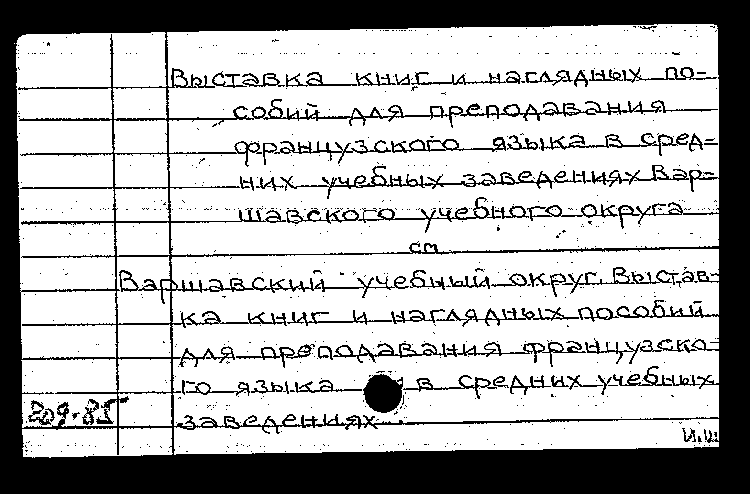 Выставка книг и наглядных по=
собий для преподавания
французского языка в сред=
них учебных заведениях Вар=
шавского учебного округа
см
Варшавский учебный округ. Выстав-
ка книг и наглядных пособий
для преподавания французско-
го языка в средних учебных
заведениях.
209-85
И.Ш